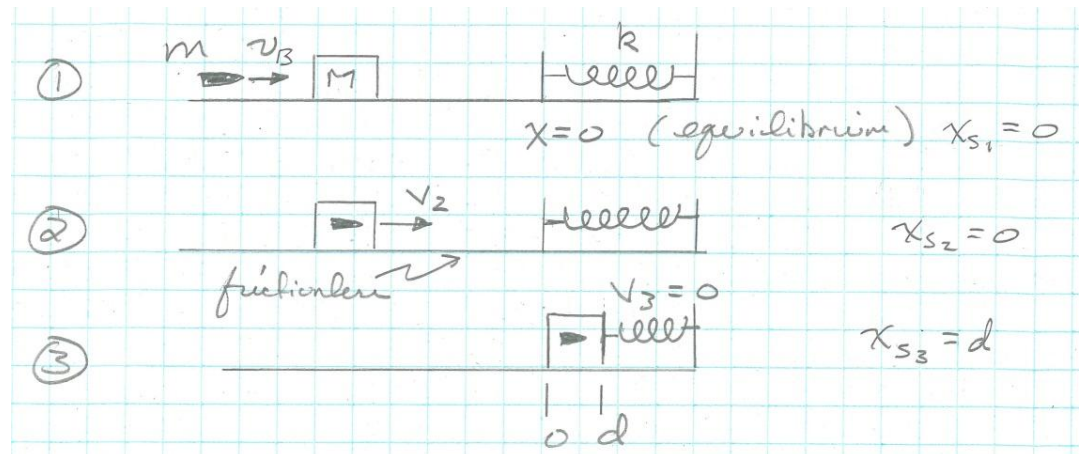 m v_B k
① M
x=0 (equilibrium) x_{S_1} = 0
v_2
② x_{S_2} = 0
frictionless v_3 = 0
③ x_{S_3} = d
0 d